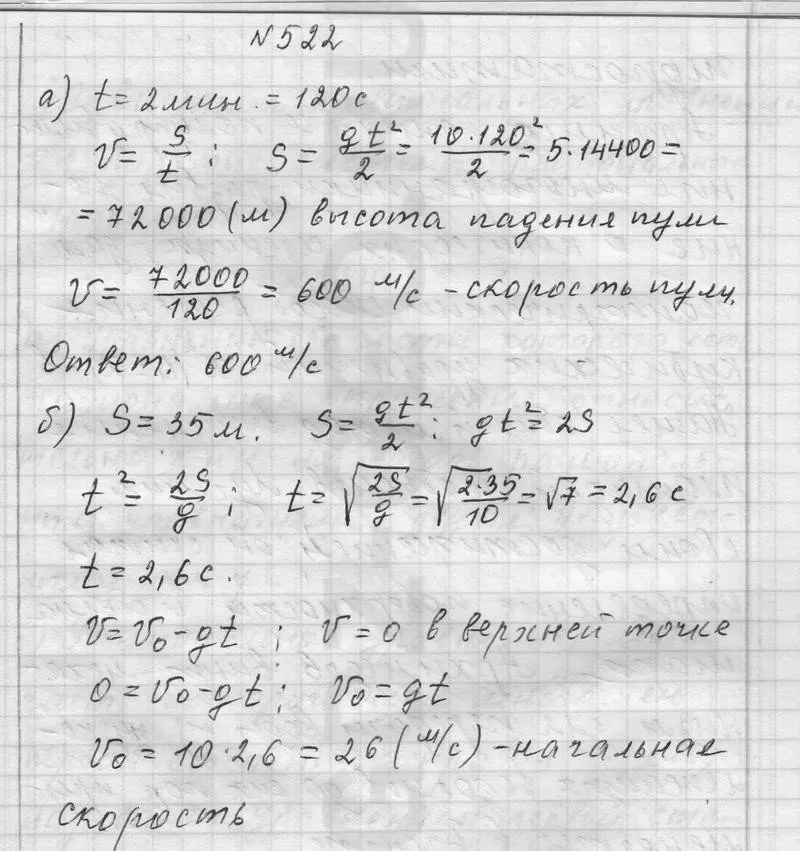 №522
а) t = 2 мин. = 120 с
V = S/t ; S = gt²/2 = 10·120²/2 = 5·14400 =
= 72000 (м) высота падения пули
V = 72000/120 = 600 м/с - скорость пули.
Ответ: 600 м/с
б) S = 35 м. S = gt²/2 ; gt² = 2S
t² = 2S/g ; t = √(2S/g) = √(2·35/10) = √7 = 2,6 с
t = 2,6 с.
V = V₀ - gt ; V = 0 в верхней точке
0 = V₀ - gt ; V₀ = gt
V₀ = 10·2,6 = 26 (м/с) - начальная
скорость